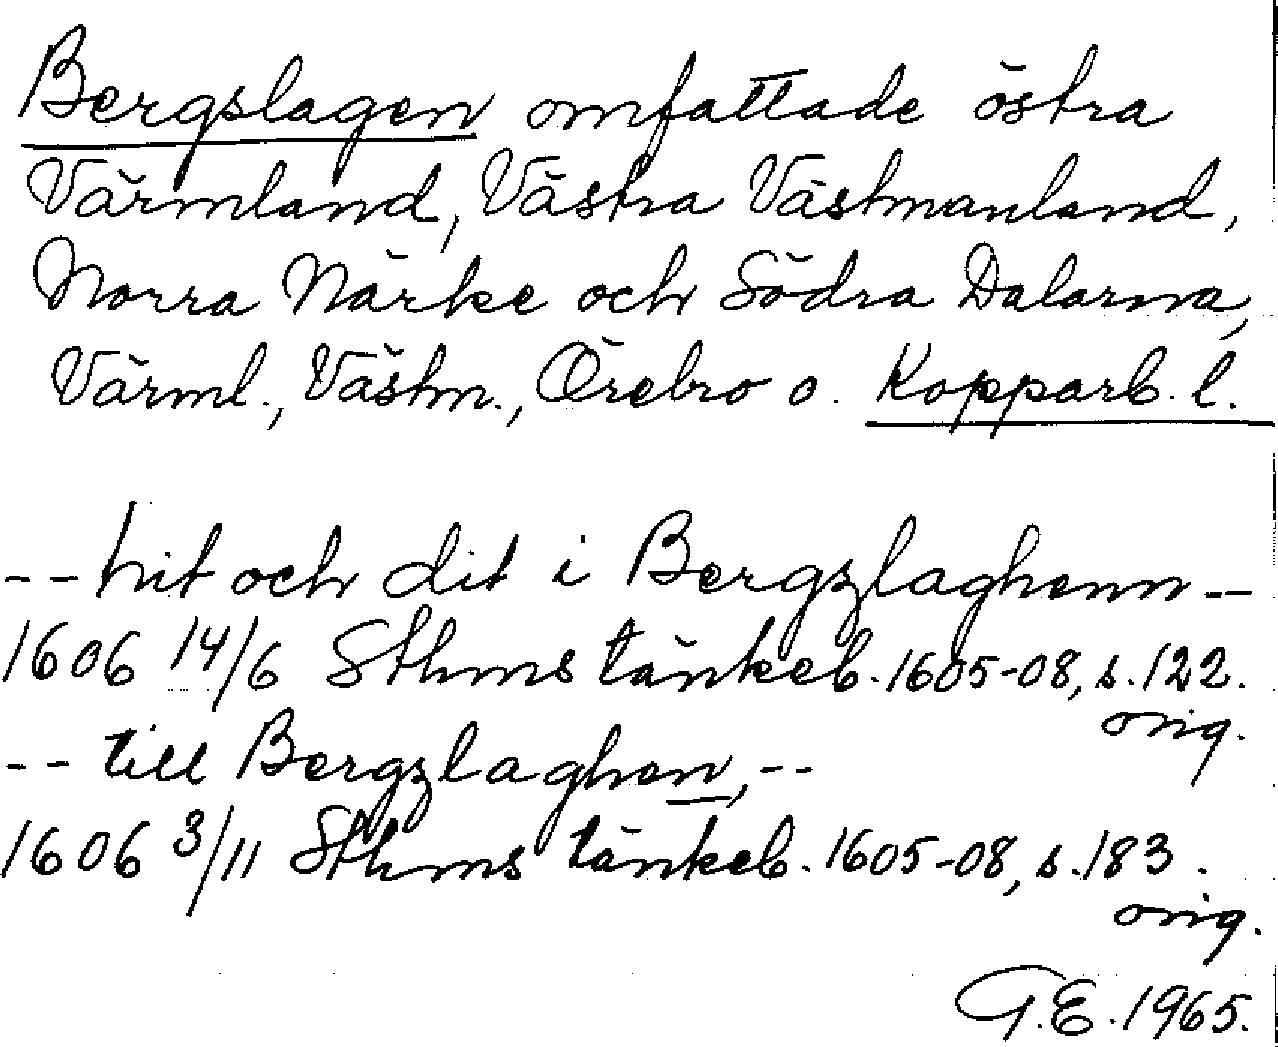 Bergslagen omfattade östra
Värmland, Västra Västmanland,
Norra Närke och Södra Dalarna,
Värml., Västm., Örebro o. Kopparb. l.
-- hit och dit i Bergzlaghenn --
1606 14/6 Sthms tänkeb. 1605-08, s. 122.
orig.
-- till Bergzlaghen, --
1606 3/11 Sthms tänkeb. 1605-08, s. 183.
orig.
G.E. 1965.